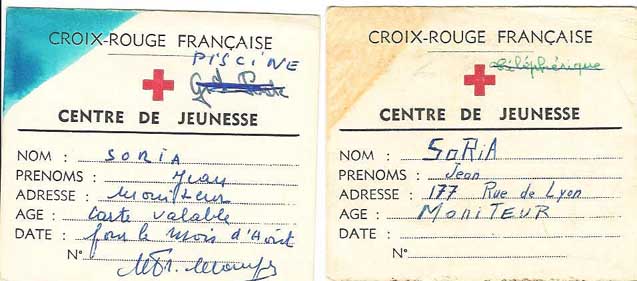 CROIX-ROUGE FRANÇAISE
PISCINE
CENTRE DE JEUNESSE
NOM : SORIA
PRENOMS : Jean
ADRESSE : Moniteur
AGE : Carte valable
DATE : pour le mois d'Août
N°
CROIX-ROUGE FRANÇAISE
téléphérique
CENTRE DE JEUNESSE
NOM : SORIA
PRENOMS : Jean
ADRESSE : 177 Rue de Lyon
AGE : MONITEUR
DATE :
N°